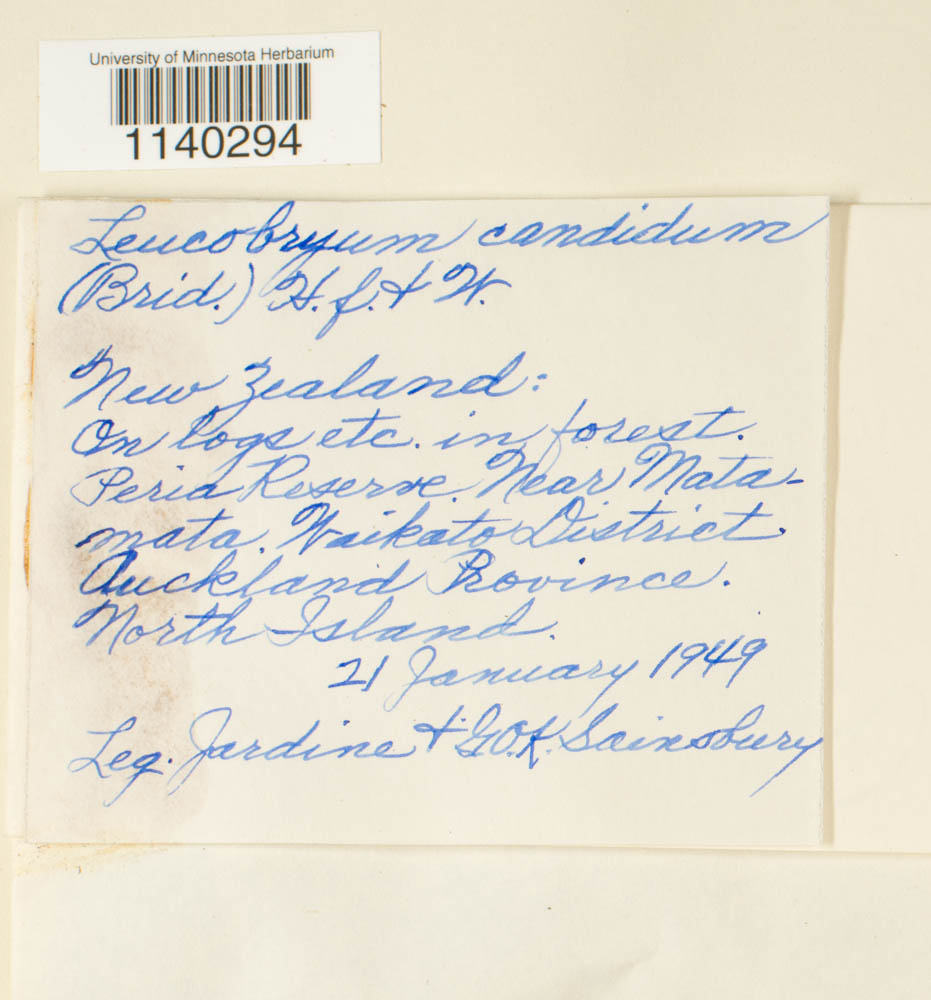 University of Minnesota Herbarium
1140294
Leucobryum candidum
(Brid.) H.f. + W.
New Zealand:
On logs etc. in forest.
Peria Reserve. Near Mata-
mata. Waikato District.
Auckland Province.
North Island.
21 January 1949
Leg. Jardine + G.O.K. Sainsbury